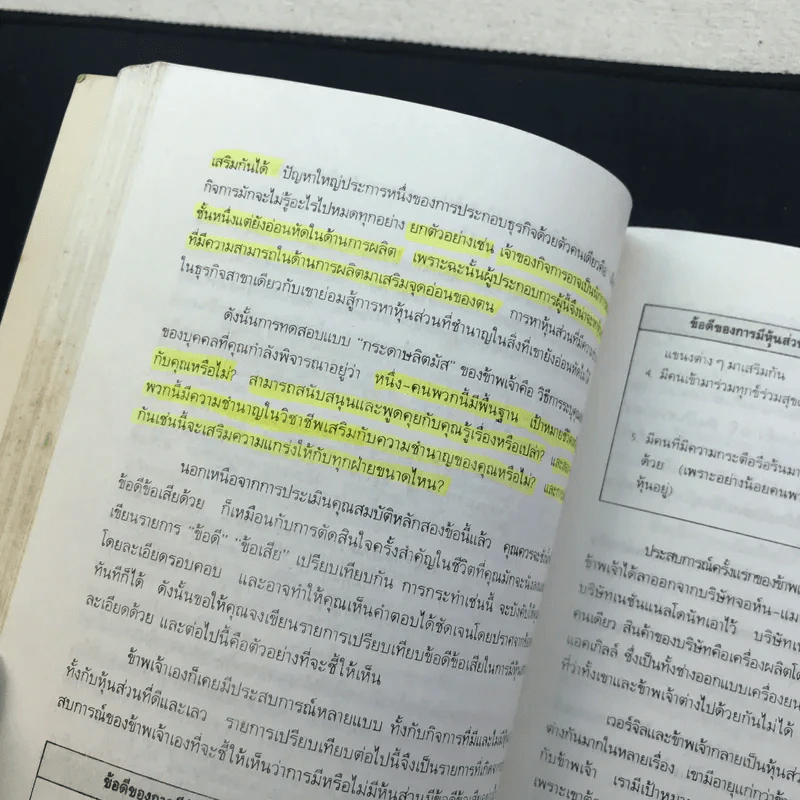 เสริมกันได้ ปัญหาใหญ่ประการหนึ่งของการประกอบธุรกิจด้วยตัวคนเดียวคือ
กิจการมักจะไม่รู้อะไรไปหมดทุกอย่าง ยกตัวอย่างเช่น เจ้าของกิจการอาจเป็นนักการ
ชั้นหนึ่งแต่ยังอ่อนหัดในด้านการผลิต เพราะฉะนั้นผู้ประกอบการผู้นี้จึงน่าจะหา
ที่มีความสามารถในด้านการผลิตมาเสริมจุดอ่อนของตน การหาหุ้นส่วนที่มีความ
ในธุรกิจสาขาเดียวกับเขาย่อมสู้การหาหุ้นส่วนที่ชำนาญในสิ่งที่เขายังอ่อนหัดไม่
ดังนั้นการทดสอบแบบ "กระดาษลิตมัส" ของข้าพเจ้าคือ วิธีการระบุคุณ
ของบุคคลที่คุณกำลังพิจารณาอยู่ว่า หนึ่ง-คนพวกนี้มีพื้นฐาน เป้าหมายชีวิต
กับคุณหรือไม่? สามารถสนับสนุนและพูดคุยกับคุณรู้เรื่องหรือเปล่า? และ
พวกนี้มีความชำนาญในวิชาชีพเสริมกับความชำนาญของคุณหรือไม่? และ
กันเช่นนี้จะเสริมความแกร่งให้กับทุกฝ่ายขนาดไหน?
นอกเหนือจากการประเมินคุณสมบัติหลักสองข้อนี้แล้ว คุณควรจะ
ข้อดีข้อเสียด้วย ก็เหมือนกับการตัดสินใจครั้งสำคัญในชีวิตที่คุณมักจะนั่งลง
เขียนรายการ "ข้อดี" "ข้อเสีย" เปรียบเทียบกัน การกระทำเช่นนี้ จะบังคับให้
โดยละเอียดรอบคอบ และอาจทำให้คุณเห็นคำตอบได้ชัดเจนโดยปราศจาก
ทันทีก็ได้ ดังนั้นขอให้คุณจงเขียนรายการเปรียบเทียบข้อดีข้อเสียในการมีหุ้น
ละเอียดด้วย และต่อไปนี้คือตัวอย่างที่จะชี้ให้เห็น
ข้าพเจ้าเองก็เคยมีประสบการณ์หลายแบบ ทั้งกับกิจการที่มีและไม่มีหุ้น
ทั้งกับหุ้นส่วนที่ดีและเลว รายการเปรียบเทียบต่อไปนี้จึงเป็นรายการที่เกิด
สบการณ์ของข้าพเจ้าเองที่จะชี้ให้เห็นว่าการมีหรือไม่มีหุ้นส่วนมีข้อดีข้อเสีย
ข้อดีของการ
ข้อดีของการมีหุ้นส่วน
แขนงต่าง ๆ มาเสริมกัน
4. มีคนเข้ามาร่วมทุกข์ร่วมสุข
5. มีคนที่มีความกระตือรือร้นมา
ด้วย (เพราะอย่างน้อยคนพวก
หุ้นอยู่)
ประสบการณ์ครั้งแรกของข้าพเจ้า
ข้าพเจ้าได้ลาออกจากบริษัทจอห์น-แม
บริษัทเนชั่นแนลโดนัทเอาไว้ บริษัท
คนเดียว สินค้าของบริษัทคือเครื่องผลิตโด
แอคเกิลส์ ซึ่งเป็นทั้งช่างออกแบบเครื่องยน
ที่ว่าทั้งเขาและข้าพเจ้าต่างไปด้วยกันไม่ได้
เวอร์จิลและข้าพเจ้ากลายเป็นหุ้นส่วน
ต่างกันมากในหลายเรื่อง เขามีอายุแก่กว่าข้า
กับข้าพเจ้า เรามีเป้าหมาย